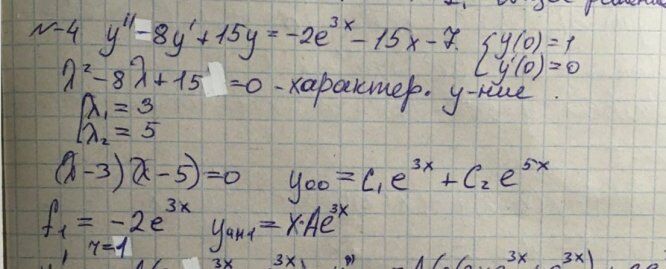 N-4 y'' - 8y' + 15y = -2e^{3x} - 15x - 7. { y(0) = 1
y'(0) = 0
λ² - 8λ + 15 = 0 - характер. у-ние.
[ λ₁ = 3
λ₂ = 5
(λ-3)(λ-5) = 0 y₀₀ = C₁e^{3x} + C₂e^{5x}
f₁ = -2e^{3x} yчн₁ = x·Ae^{3x}
r=1